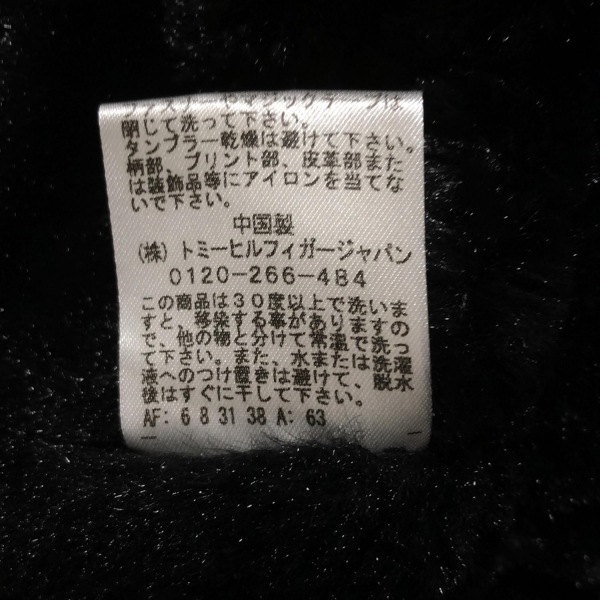 ファスナーやマジックテープは
閉じて洗って下さい。
タンブラー乾燥は避けて下さい。
柄部、プリント部、皮革部また
は装飾品等にアイロンを当てな
いで下さい。
中国製
(株) トミーヒルフィガージャパン
0120-266-484
この商品は30度以上で洗いま
すと、移染する事がありますの
で、他の物と分けて常温で洗っ
て下さい。また、水または洗濯
液へのつけ置きは避けて、脱水
後はすぐに干して下さい。
AF: 6 8 31 38 A: 63